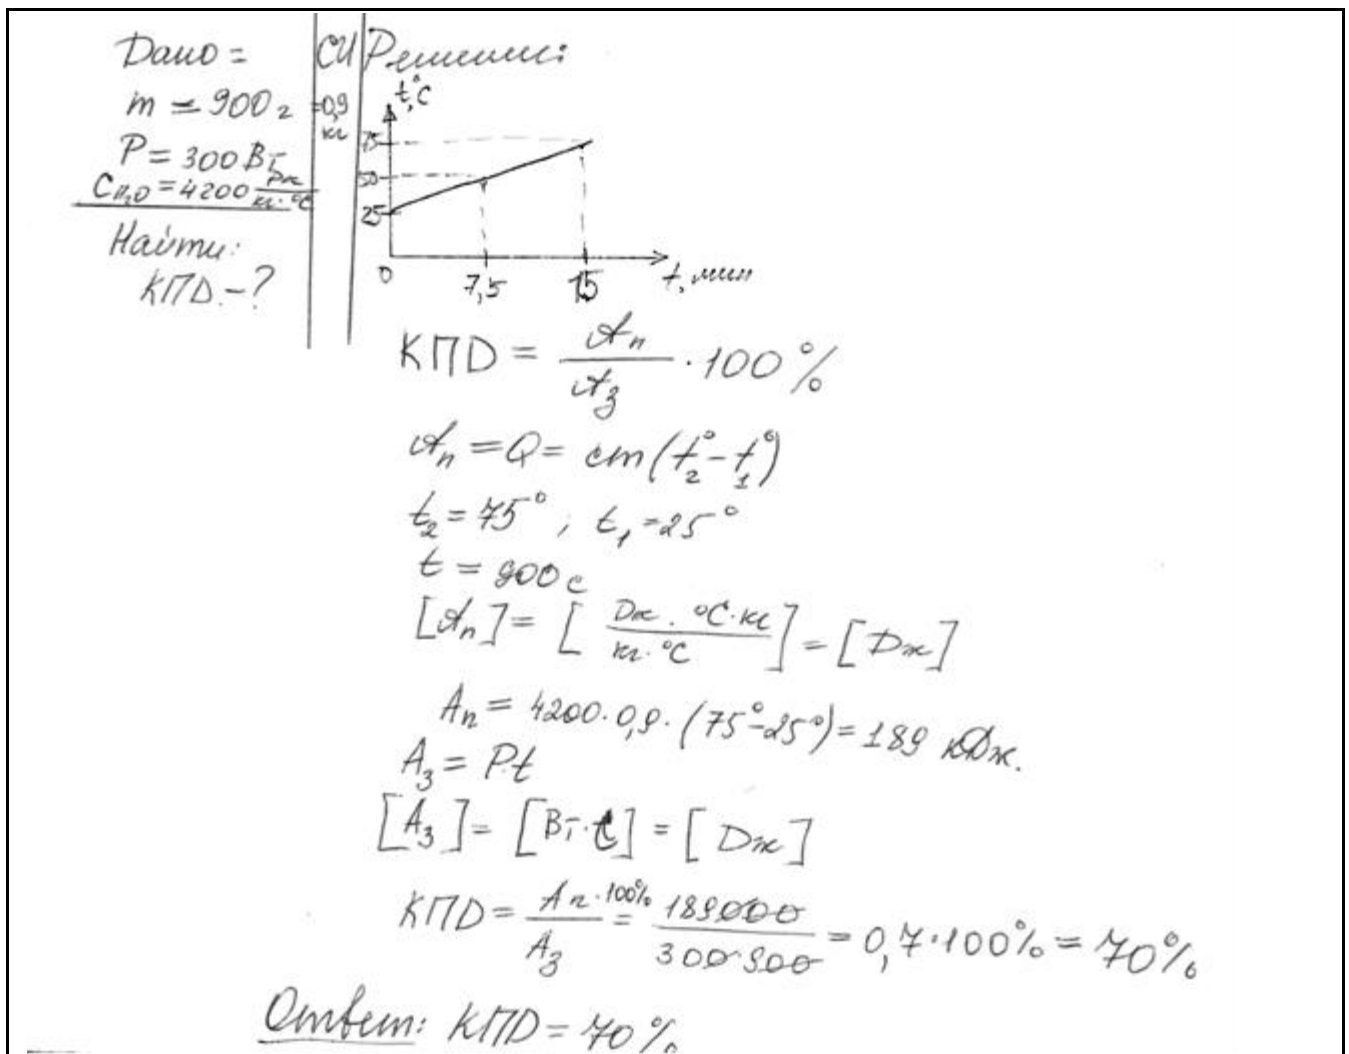 Дано = СИ Решение:
m = 900 г =0,9 кг
P = 300 Вт
C H₂O = 4200 Дж/кг·°C
Найти:
КПД.-?
t,°C
75
50
25
0 7,5 15 t, мин
КПД = Aп/Aз · 100%
Aп = Q = cm(t°₂ - t°₁)
t₂ = 75°, t₁ = 25°
t = 900 с
[Aп] = [Дж · °C·кг/кг·°C] = [Дж]
Aп = 4200·0,9·(75°-25°) = 189 кДж.
Aз = P·t
[Aз] = [Вт·с] = [Дж]
КПД = Aп·100%/Aз = 189000/300·900 = 0,7·100% = 70%
Ответ: КПД = 70%